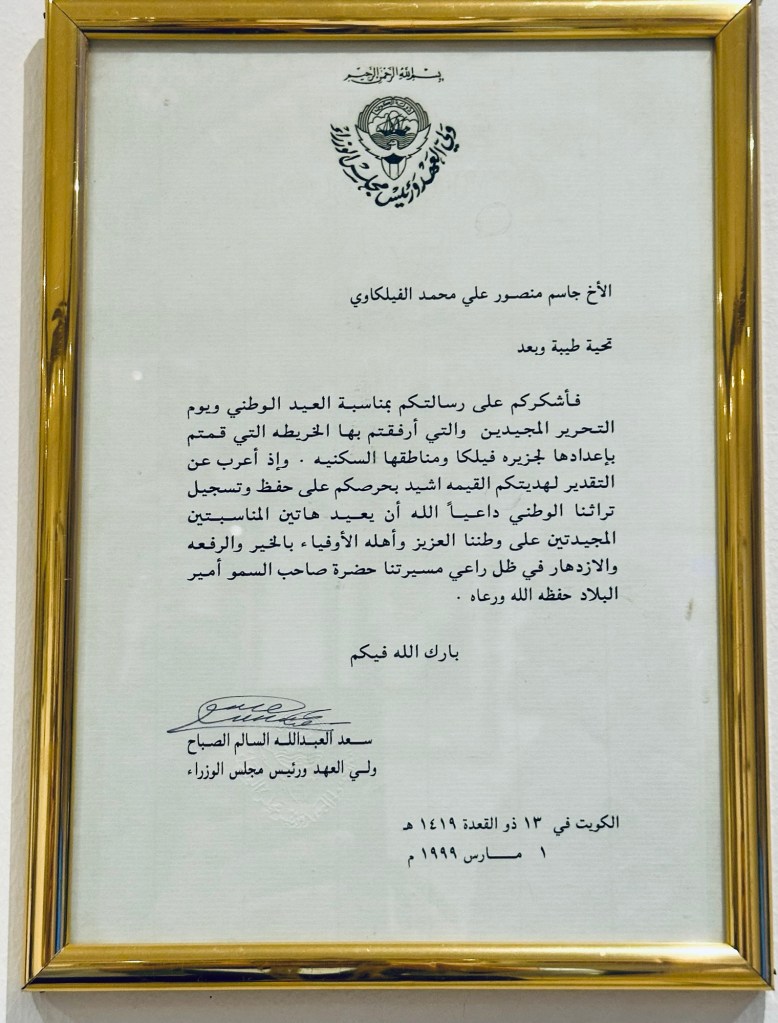 بسم الله الرحمن الرحيم
ولي العهد ورئيس مجلس الوزراء
الأخ جاسم منصور علي محمد الفيلكاوي
تحية طيبة وبعد
فأشكركم على رسالتكم بمناسبة العيد الوطني ويوم
التحرير المجيدين والتي أرفقتم بها الخريطه التي قمتم
بإعدادها لجزيره فيلكا ومناطقها السكنيه . وإذ أعرب عن
التقدير لهديتكم القيمه اشيد بحرصكم على حفظ وتسجيل
تراثنا الوطني داعياً الله أن يعيد هاتين المناسبتين
المجيدتين على وطننا العزيز وأهله الأوفياء بالخير والرفعه
والازدهار في ظل راعي مسيرتنا حضرة صاحب السمو أمير
البلاد حفظه الله ورعاه .
بارك الله فيكم
سعد العبدالله السالم الصباح
ولي العهد ورئيس مجلس الوزراء
الكويت في ١٣ ذو القعدة ١٤١٩ هـ
١ مارس ١٩٩٩ م